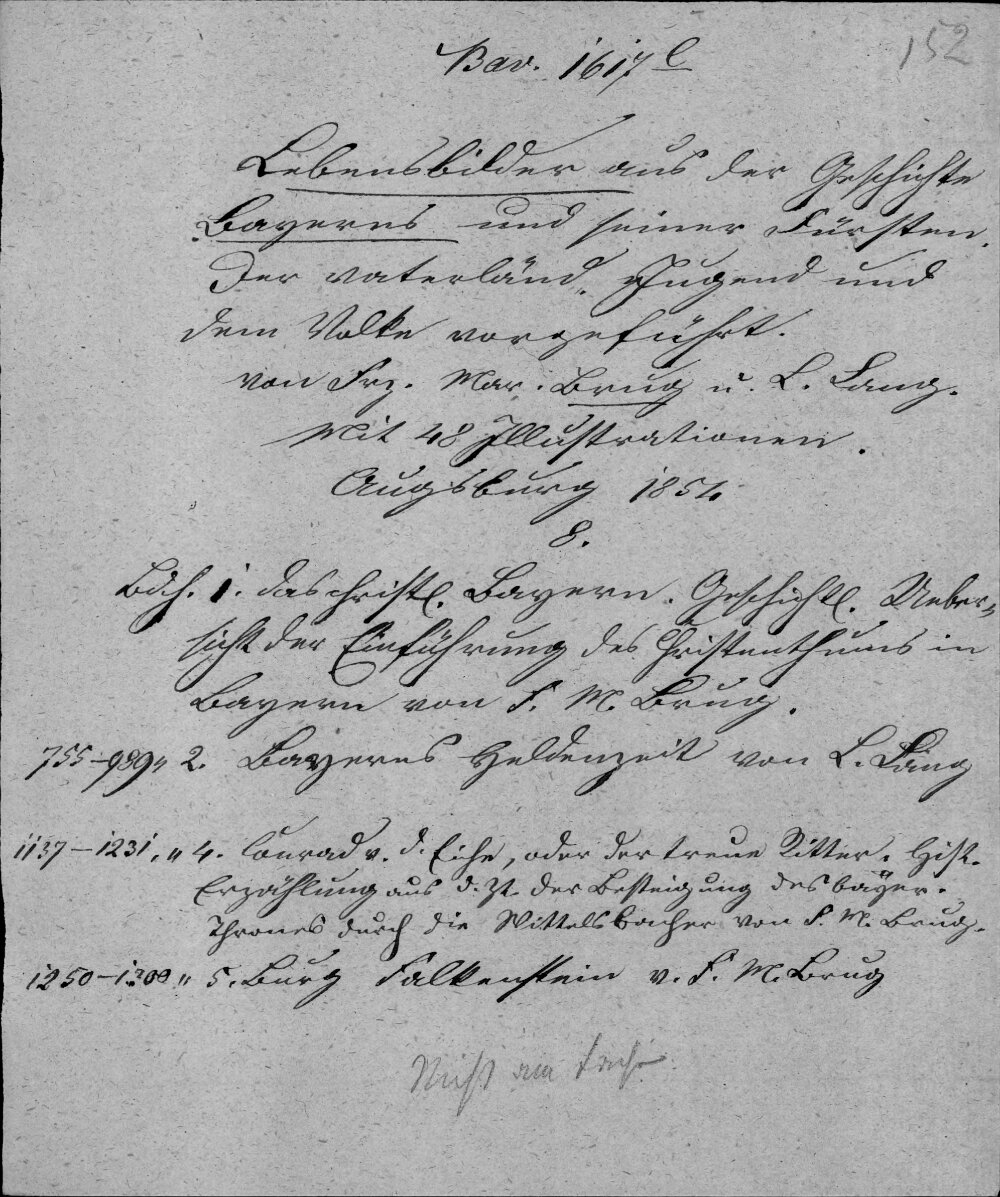 152
Bav. 1617 l
Lebensbilder aus der Geschichte
Bayerns und seiner Fürsten.
Der vaterländ. Jugend und
dem Volke vorgeführt.
von Frz. Mar. Brug u. L. Lang.
Mit 48 Illustrationen.
Augsburg 1854
8.
Bdch. 1. das christl. Bayern. Geschichtl. Ueber-
sicht der Einführung des Christenthums in
Bayern von F. M. Brug.
755-989 " 2. Bayerns Heldenzeit von L. Lang
1137-1231. " 4. Conrad v. d. Eiche, oder der treue Ritter. Hist.
Erzählung aus d. Zt. der Besteigung des bayer.
Thrones durch die Wittelsbacher von F. M. Brug.
1250-1300 " 5. Burg Falkenstein v. F. M. Brug
Nicht am